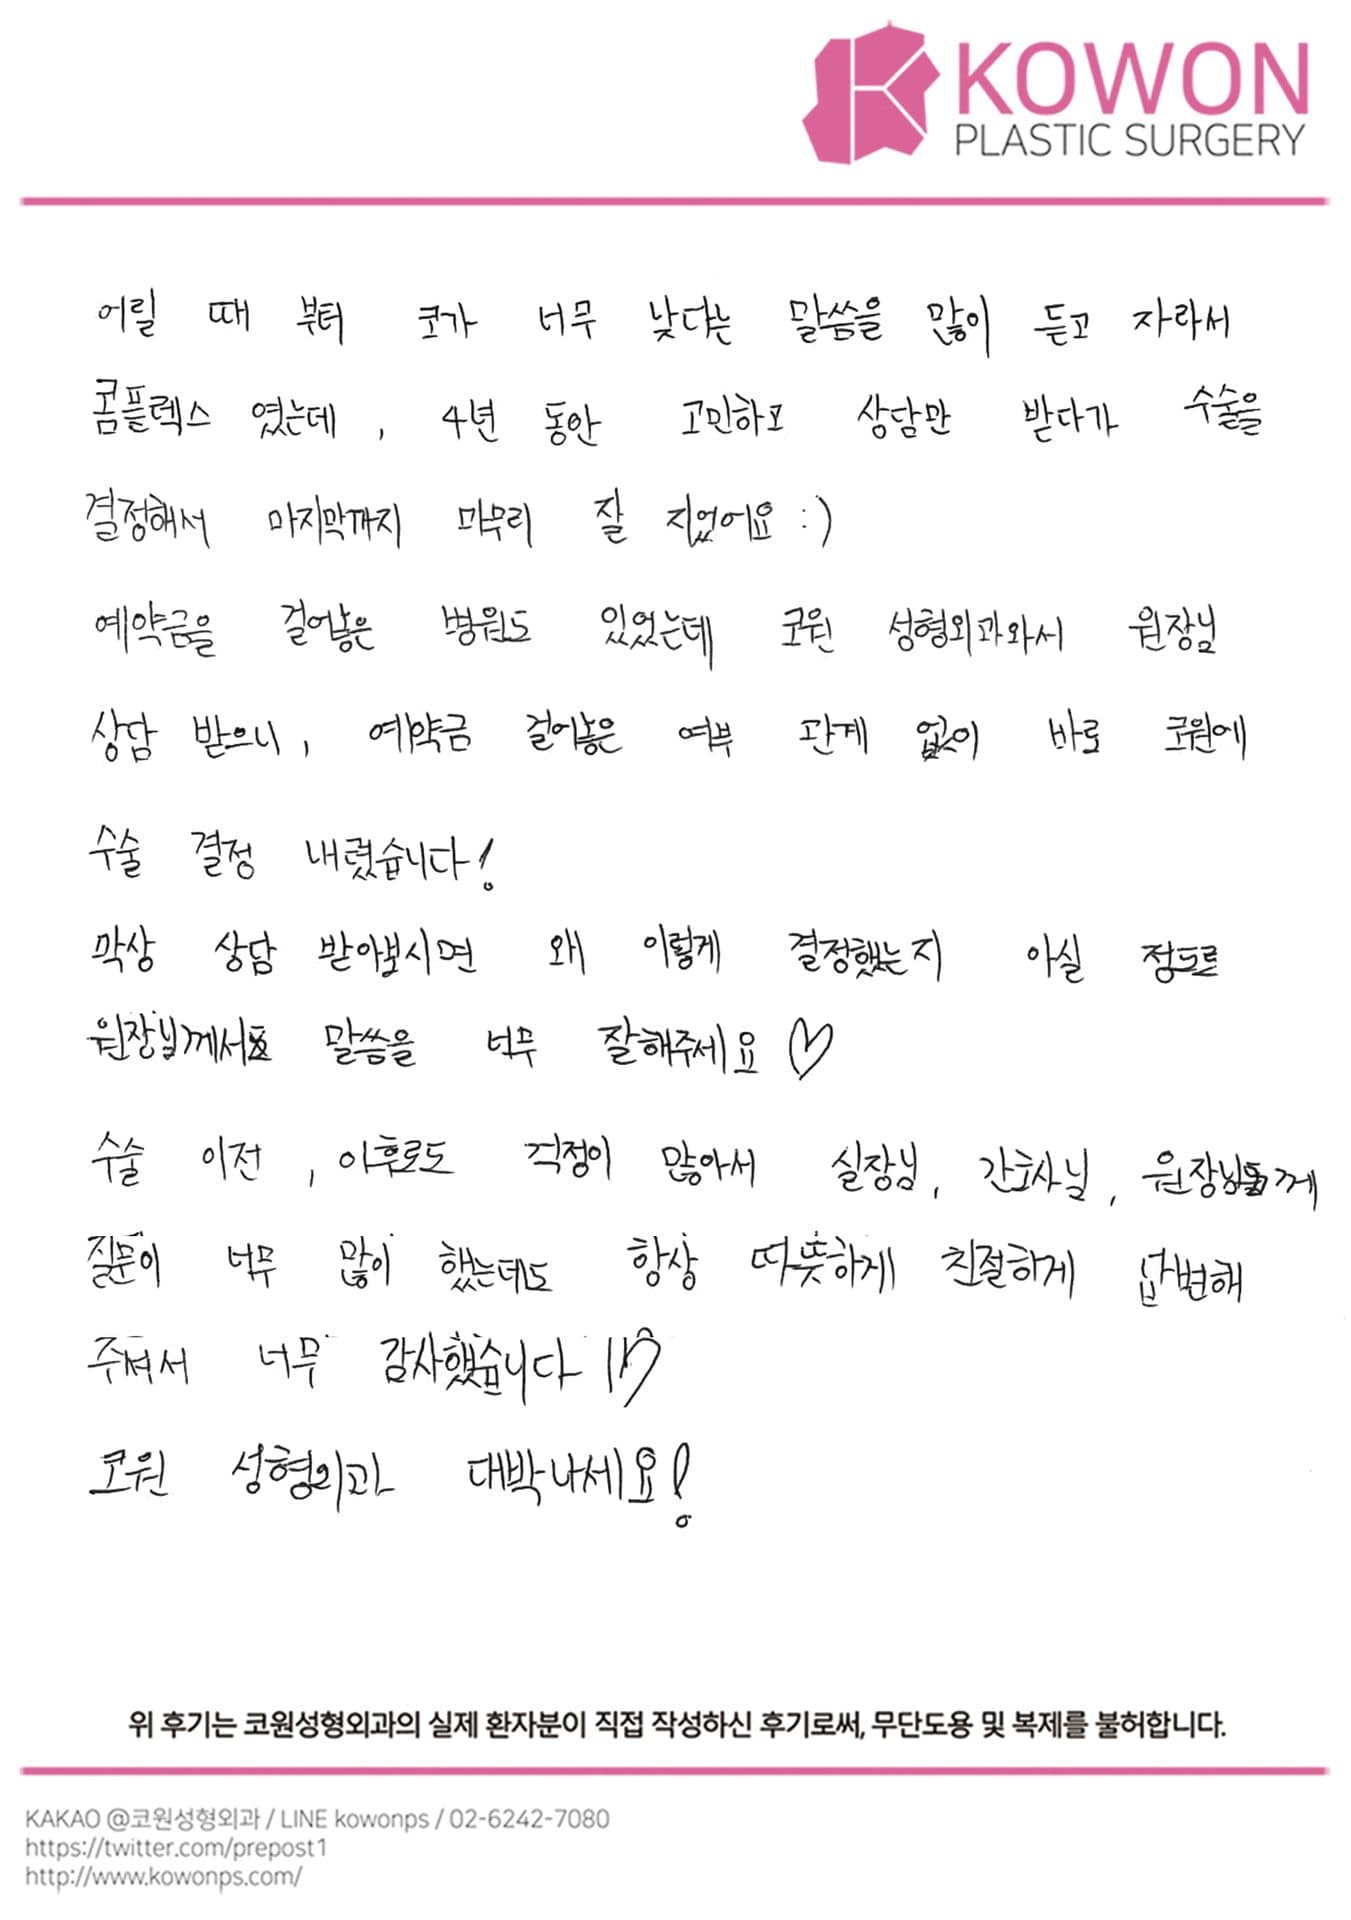 KOWON
PLASTIC SURGERY
어릴 때 부터 코가 너무 낮다는 말씀을 많이 듣고 자라서
콤플렉스 였는데, 4년 동안 고민하고 상담만 받다가 수술을
결정해서 마지막까지 마무리 잘 지었어요 :)
예약금을 걸어놓은 병원도 있었는데 코원 성형외과와서 원장님
상담 받으니, 예약금 걸어놓은 여부 관계 없이 바로 코원에
수술 결정 내렸습니다!
막상 상담 받아보시면 왜 이렇게 결정했는지 아실 정도로
원장님께서 말씀을 너무 잘해주세요 ♡
수술 이전, 이후로도 걱정이 많아서 실장님, 간호사님, 원장님께
질문이 너무 많이 했는데도 항상 따뜻하게 친절하게 답변해
주셔서 너무 감사했습니다 !!♡
코원 성형외과 대박나세요!
위 후기는 코원성형외과의 실제 환자분이 직접 작성하신 후기로써, 무단도용 및 복제를 불허합니다.
KAKAO @코원성형외과 / LINE kowonps / 02-6242-7080
https://twitter.com/prepost1
http://www.kowonps.com/